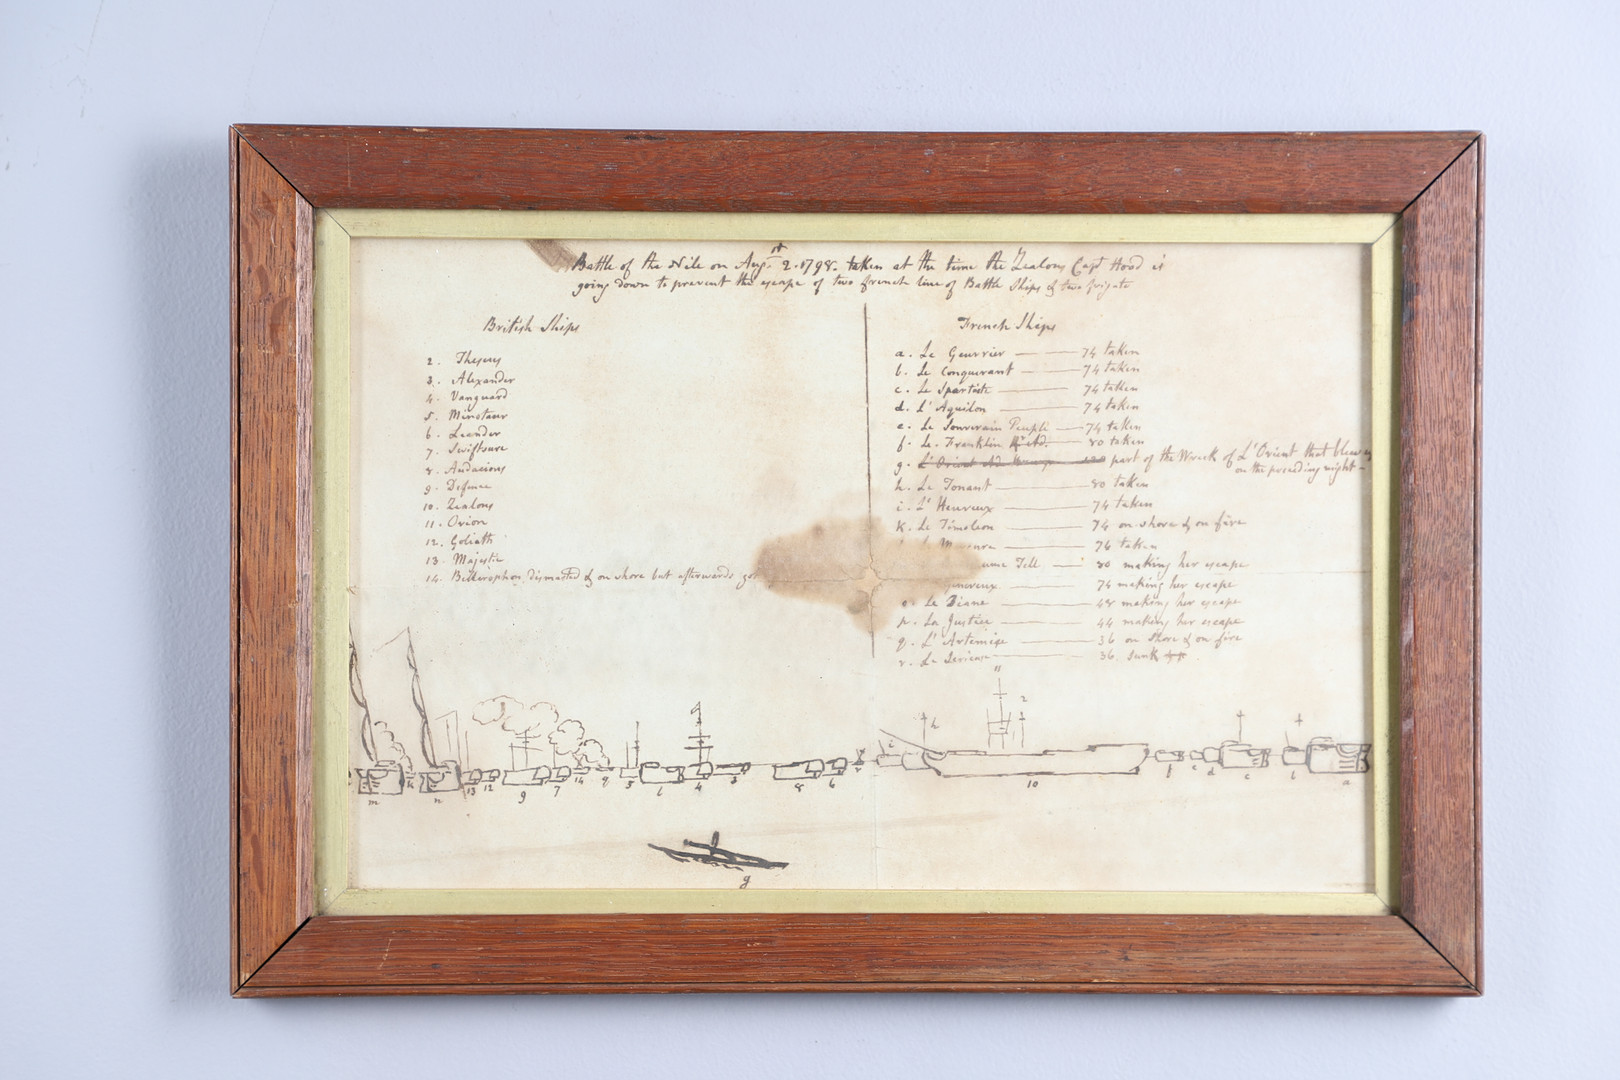 Battle of the Nile on Augst 2. 1798. taken at the time the Zealous Capt Hood is
going down to prevent the escape of two french line of Battle Ships & two frigate
British Ships
2. Theseus
3. Alexander
4. Vanguard
5. Minotaur
6. Leander
7. Swiftsure
8. Audacious
9. Defence
10. Zealous
11. Orion
12. Goliath
13. Majestic
14. Bellerophon dismasted & on shore but afterwards
French Ships
a. Le Geurrier 74 taken
b. Le Conquerant 74 taken
c. Le Spartiate 74 taken
d. L'Aquilon 74 taken
e. Le Souverain Peuple 74 taken
f. Le Franklin 80 taken
g. L'Orient part of the Wreck of L'Orient that blew up
on the preceding night
h. Le Tonant 80 taken
i. L'Heureux 74 taken
k. Le Timoleon 74 on shore & on fire
Le Mercure 76 taken
Tell 80 making her escape
74 making her escape
o. Le Diane 48 making her escape
p. La Justice 44 making her escape
q. L'Artemise 36 on shore & on fire
r. La Serieuse 36 sunk
11
2
h
i
m
k
n
13
12
9
7
14
q
5
l
4
3
8
6
10
f
e
d
c
b
a
g